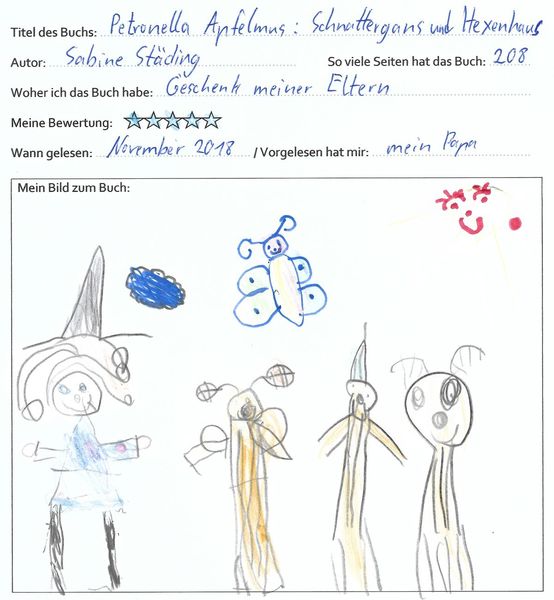 Titel des Buchs: Petronella Apfelmus: Schnattergans und Hexenhaus
Autor: Sabine Städing So viele Seiten hat das Buch: 208
Woher ich das Buch habe: Geschenk meiner Eltern
Meine Bewertung:
Wann gelesen: November 2018 / Vorgelesen hat mir: mein Papa
Mein Bild zum Buch: